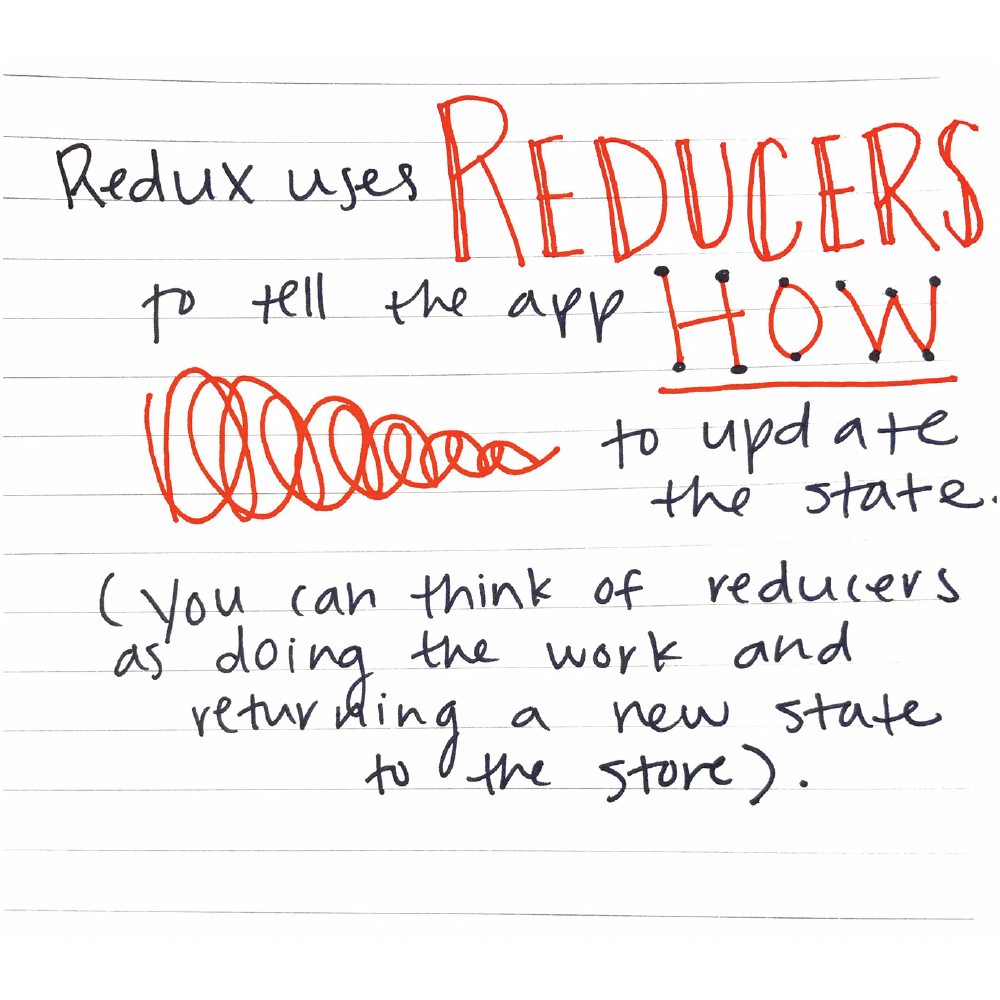 Redux uses REDUCERS
to tell the app HOW
to update
the state.
(you can think of reducers
as doing the work and
returning a new state
to the store).